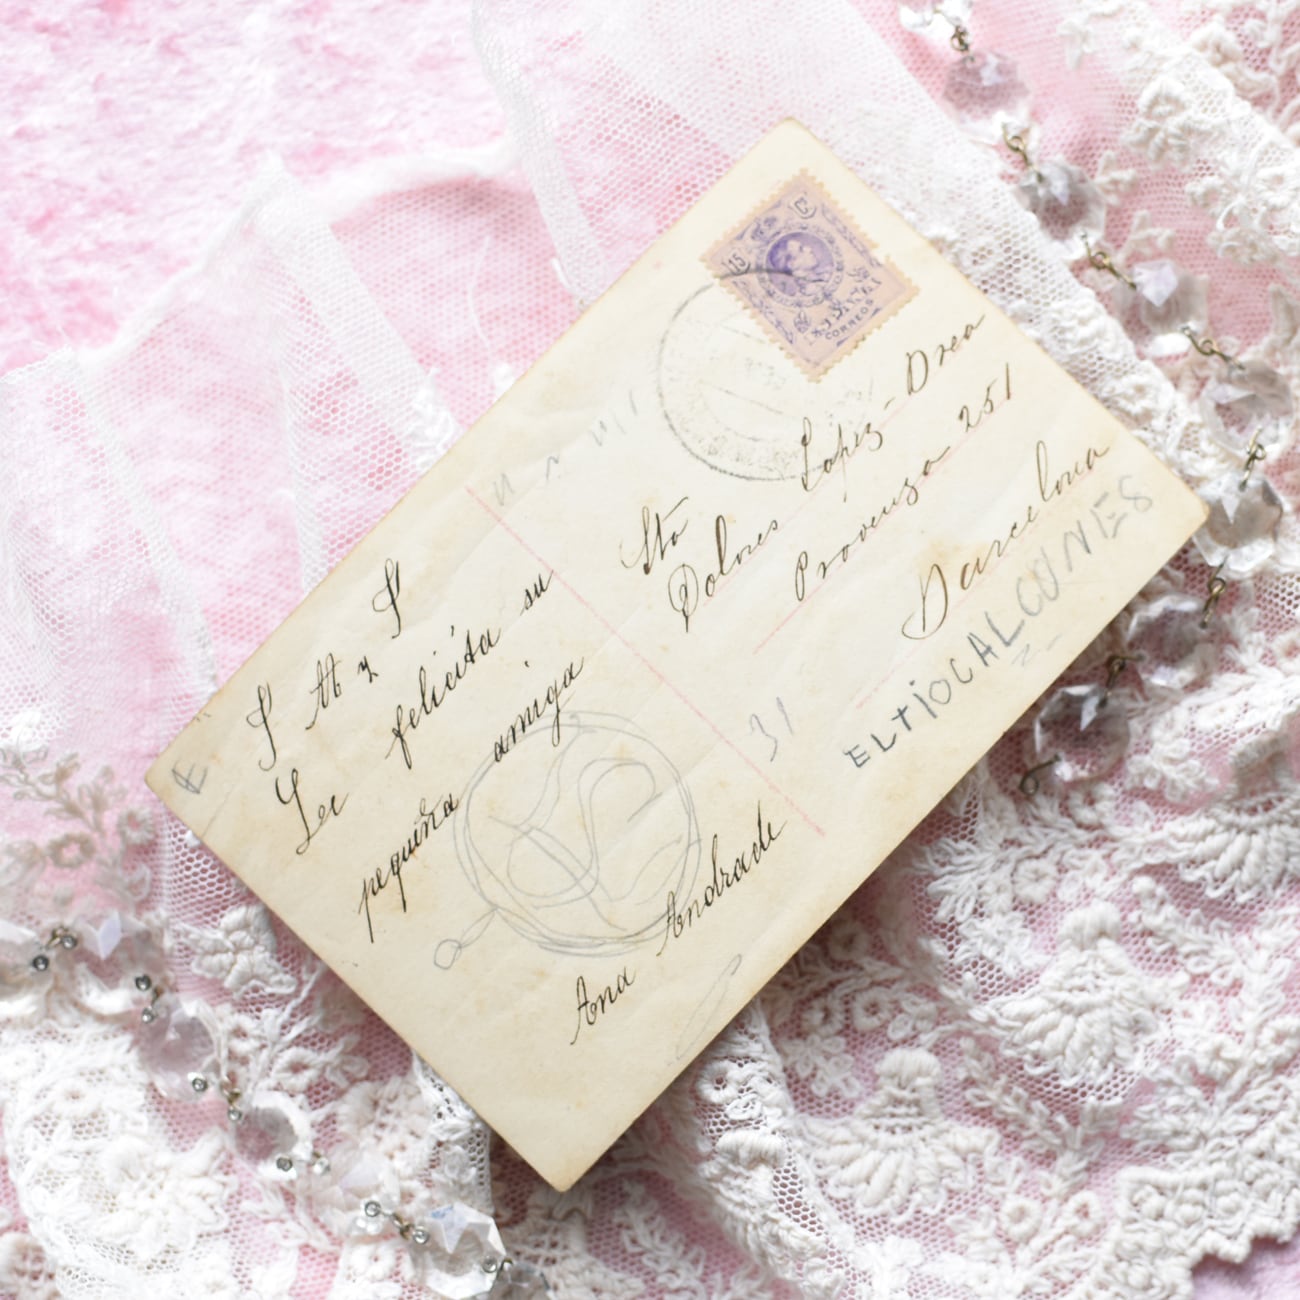 15 C
CORREOS
Sta
Dolores Lopez-Drea
Provenza 251
Barcelona
EL tiOCALCONES
31
S M y S
Le felicita su
pequeña amiga
Ana Andrade